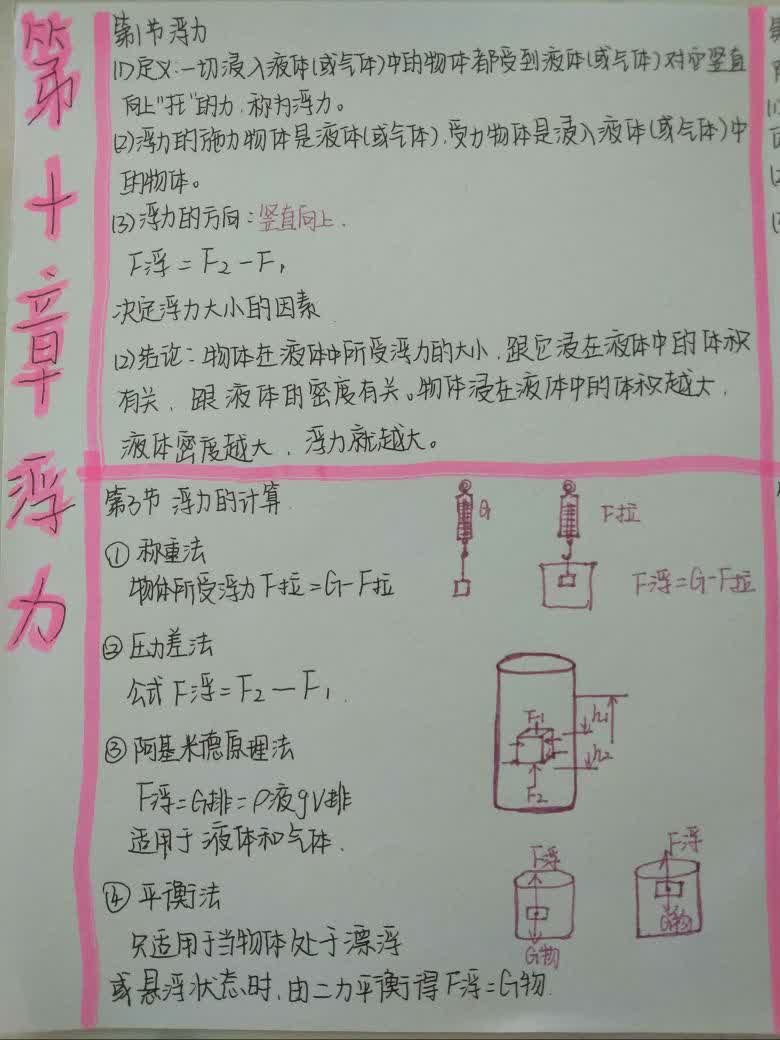 第十章浮力
第1节浮力
(1)定义:一切浸入液体(或气体)中的物体都受到液体(或气体)对它竖直
向上"托"的力,称为浮力。
(2)浮力的施力物体是液体(或气体),受力物体是浸入液体(或气体)中
的物体。
(3)浮力的方向:竖直向上.
F浮=F2-F1
决定浮力大小的因素
(2)结论:物体在液体中所受浮力的大小,跟它浸在液体中的体积
有关,跟液体的密度有关。物体浸在液体中的体积越大,
液体密度越大,浮力就越大。
第3节 浮力的计算
①称重法
物体所受浮力F拉=G-F拉
G
F拉
F浮=G-F拉
②压力差法
公式F浮=F2-F1.
F1
h1
h2
F2
③阿基米德原理法
F浮=G排=ρ液gV排
适用于液体和气体.
④平衡法
只适用于当物体处于漂浮
或悬浮状态时,由二力平衡得F浮=G物.
F浮
G物
F浮
G物